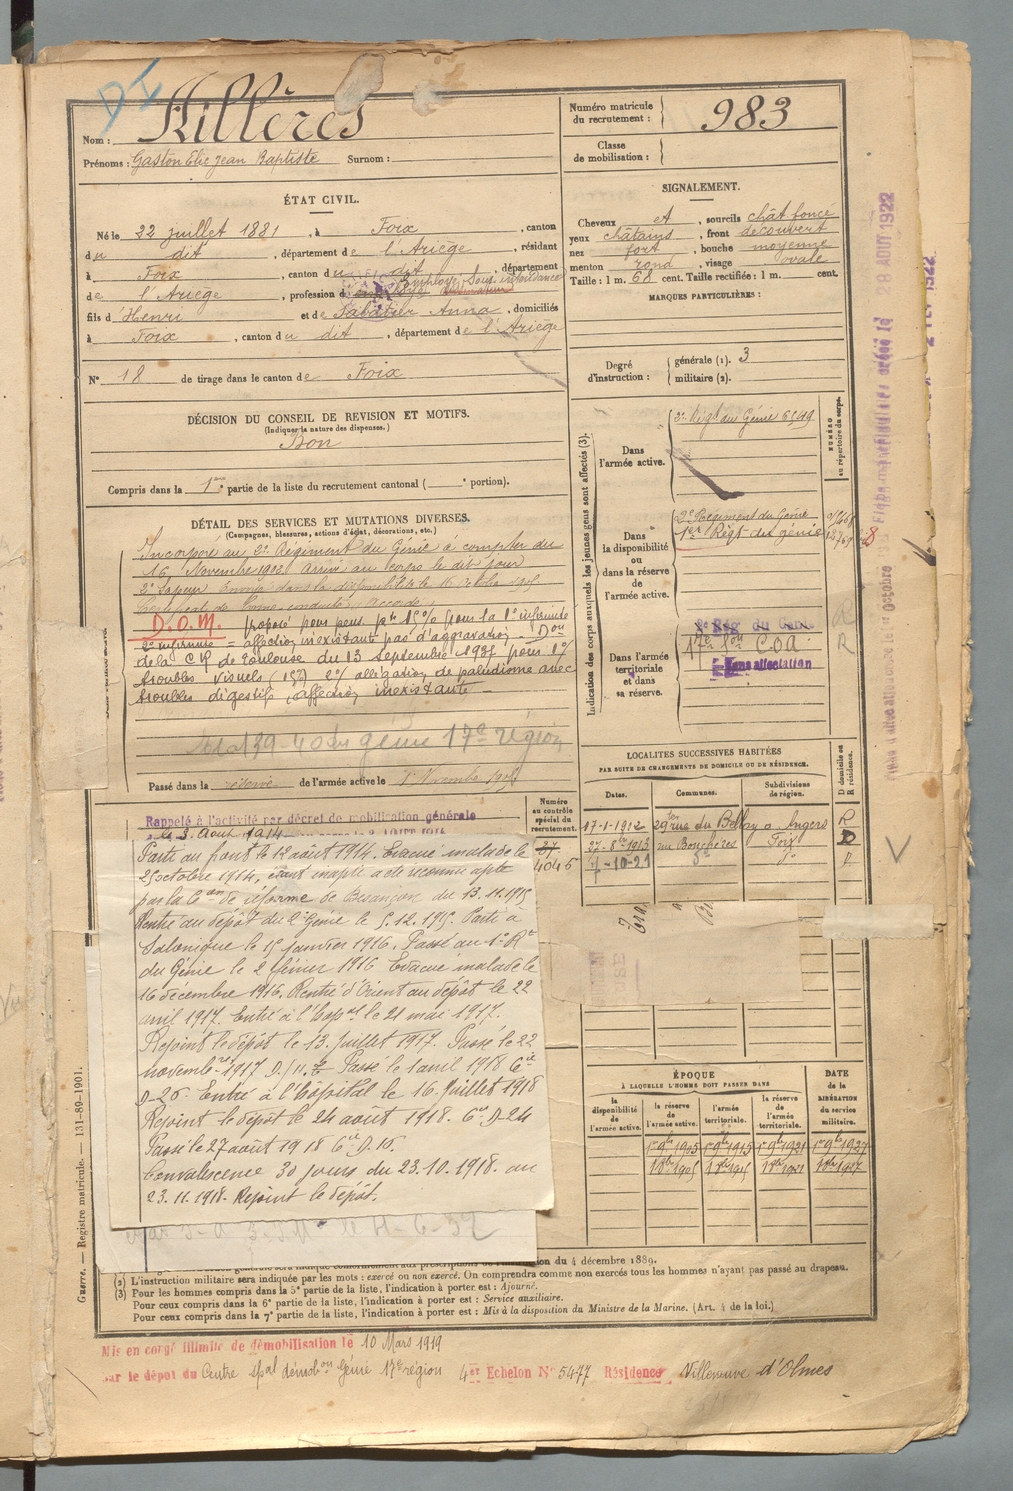 DI
Nom : Hillères
Prénoms : Gaston Elie Jean Baptiste Surnom :
Numéro matricule du recrutement : 983
Classe de mobilisation :
ÉTAT CIVIL.
Né le 22 juillet 1881, à Foix, canton
du dit, département de l'Ariège, résidant
à Foix, canton du dit, département
de l'Ariège, profession d Employé Sous intendance
fils d'Henri et de Sabatier Anna, domiciliés
à Foix, canton du dit, département de l'Ariège
N° 18 de tirage dans le canton de Foix
SIGNALEMENT.
Cheveux et, sourcils chât foncé
yeux châtains, front découvert
nez fort, bouche moyenne
menton rond, visage ovale
Taille : 1 m. 68 cent. Taille rectifiée : 1 m. cent.
MARQUES PARTICULIÈRES :
Degré d'instruction : générale (1). 3
militaire (2).
DÉCISION DU CONSEIL DE REVISION ET MOTIFS.
(Indiquer la nature des dispenses.)
Bon
Compris dans la 1re partie de la liste du recrutement cantonal ( e portion).
DÉTAIL DES SERVICES ET MUTATIONS DIVERSES.
(Campagnes, blessures, actions d'éclat, décorations, etc.)
Incorporé au 2e Régiment du Génie à compter du
16 Novembre 1902. Arrivé au corps le dit jour
2e Sapeur Envoyé dans la disponibilité le
Certificat de bonne conduite Accordé
D.O.M. proposé pour pens. pte 15% pour la 1e infirmité
2e infirmité = affection inexistante pas d'aggravation
de la C R de Toulouse du 13 septembre 1937 pour 1°/
troubles visuels (15%) 2°/ allégation de paludisme avec
troubles digestifs, affection inexistante
39-40 du génie 17e région
Passé dans la réserve de l'armée active le 1er Novembre 1905
Indication des corps auxquels les jeunes gens sont affectés (3).
NUMÉRO au répertoire du corps.
Dans l'armée active.
2e Régt du Génie 6549
Dans la disponibilité ou dans la réserve de l'armée active.
2e Régiment du Génie
1er Régt du génie
Dans l'armée territoriale et dans sa réserve.
2e Rég du Génie
17e Son C.O.A
Sans affectation
R
R
28 AOUT 1922
LOCALITÉS SUCCESSIVES HABITÉES
PAR SUITE DE CHANGEMENTS DE DOMICILE OU DE RÉSIDENCE.
Dates. Communes. Subdivisions de région. D domicile ou R résidence.
17-1-1912 29ter rue du Bellay a Angers R
27-8bre 1913 rue Bouchères Foix D
7-10-21
Numéro au contrôle spécial du recrutement.
37
4045
Rappelé à l'activité par décret de mobilisation générale
le 3 Aout 1914
Parti au front le 12 août 1914. Evacué malade le
25 octobre 1914, étant inapte a été reconnu apte
par la Con de réforme de Besançon du 13.11.1915
Rentré au dépôt du 2e Génie le 5.12.1915. Parti à
Salonique le 15 janvier 1916. Passé au 1er Rt
du Génie le 2 février 1916 Evacué malade le
16 décembre 1916. Rentré d'Orient au dépôt le 22
avril 1917. Entré à l'hopal le 21 mai 1917.
Rejoint le dépôt le 13 juillet 1917. Passé le 22
novembre 1917 Passé le 1 avril 1918 Cie
D-26. Entré à l'hôpital le 16 juillet 1918
Rejoint le dépôt le 24 août 1918. Cie D-24
Passé le 27 août 1918 Cie D.16
Convalescence 30 jours du 23.10.1918. au
23.11.1918. Rejoint le dépôt.
ÉPOQUE
À LAQUELLE L'HOMME DOIT PASSER DANS
la disponibilité de l'armée active. la réserve de l'armée active. l'armée territoriale. la réserve de l'armée territoriale.
DATE de la LIBÉRATION du service militaire.
1er 9bre 1905 1er 9bre 1915 1er 9bre 1921 1er 9bre 1927
du 4 décembre 1889.
(2) L'instruction militaire sera indiquée par les mots : exercé ou non exercé. On comprendra comme non exercés tous les hommes n'ayant pas passé au drapeau.
(3) Pour les hommes compris dans la 5e partie de la liste, l'indication à porter est : Ajourné.
Pour ceux compris dans la 6e partie de la liste, l'indication à porter est : Service auxiliaire.
Pour ceux compris dans la 7e partie de la liste, l'indication à porter est : Mis à la disposition du Ministre de la Marine. (Art. 4 de la loi.)
Guerre. — Registre matricule. — 131-89-1901.
Mis en congé illimité de démobilisation le 10 Mars 1919
par le dépôt du Centre démobon Génie 17e région 4er Echelon N° 5477 Résidence Villeneuve d'Olmes